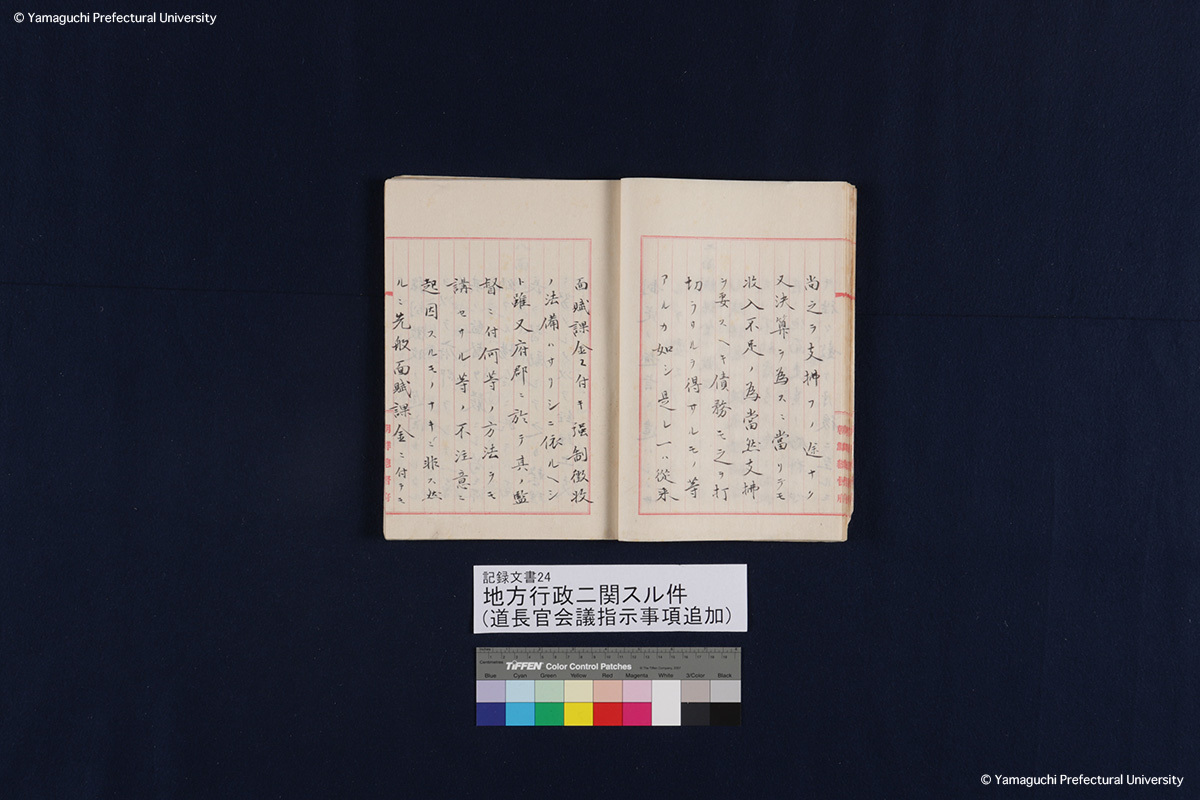 © Yamaguchi Prefectural University
尚之ヲ支拂フノ途ナク
又決算ヲ為スニ當リテモ
收入不足ノ為當然支拂
ヲ要スヘキ債務モ之ヲ打
切ラサルヲ得サルモノ等
アルカ如シ是レ一ハ從来
面賦課金ニ付キ强制徴收
ノ法備ハサリシニ依ルヘシ
ト雖又府郡ニ於テ其ノ監
督ニ付何等ノ方法ヲモ
講セサル等ノ不注意ニ
起因スルモノナキニ非ス然
ルニ先般面賦課金ニ付テモ
朝鮮總督府
記録文書24
地方行政ニ関スル件
(道長官会議指示事項追加)
Centimetres
TIFFEN Color Control Patches
Blue Cyan Green Yellow Red Magenta White 3/Color Black
© Yamaguchi Prefectural University